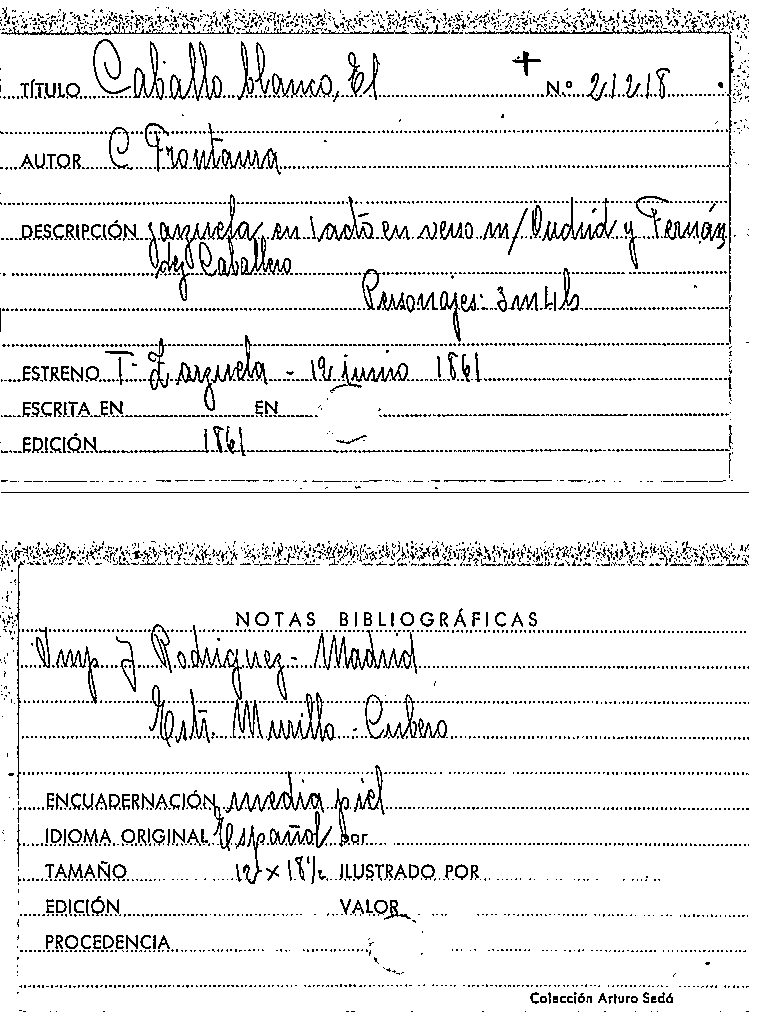 TÍTULO Caballo blanco, El + N.º 21218
AUTOR C Frontaura
DESCRIPCIÓN zarzuela en 1 acto en verso m/ Oudrid y Fernán
dez Caballero
Personajes: 3m 4h
ESTRENO T. Zarzuela - 12 junio 1861
ESCRITA EN EN
EDICIÓN 1861
NOTAS BIBLIOGRÁFICAS
Imp J Rodriguez - Madrid
Estr. Murillo - Cubero
ENCUADERNACIÓN media piel
IDIOMA ORIGINAL Español por
TAMAÑO 12 x 18½ ILUSTRADO POR
EDICIÓN VALOR
PROCEDENCIA
Colección Arturo Sedó